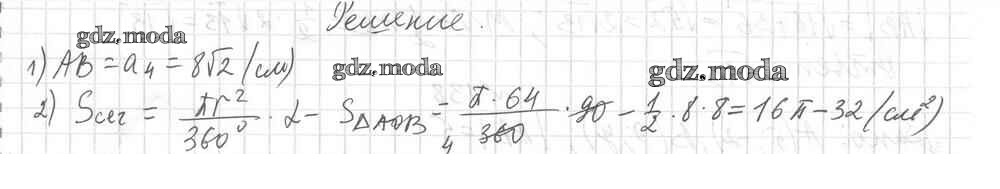 Решение.
gdz.moda
1) AB = a₄ = 8√2 (см)
gdz.moda
gdz.moda
2) Sсег = πr²/360° · α − S△AOB = π · 64/360 · 90 − 1/2 · 8 · 8 = 16π − 32 (см²)
4